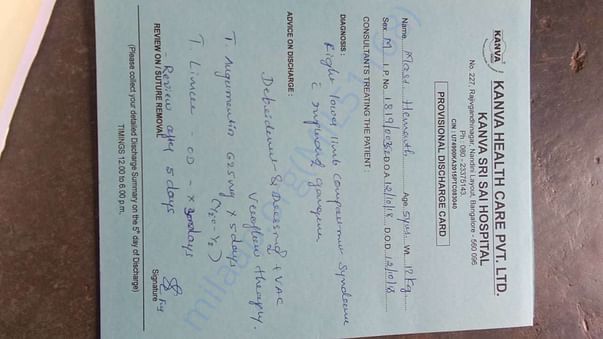 KANVA
KANVA HEALTH CARE PVT. LTD.
KANVA SRI SAI HOSPITAL
No. 227, Rajivgandhinagar, Nandini Layout, Bangalore - 560 096
Ph : 080 - 23375143
CIN : U74900KA2015PTC083040
PROVISIONAL DISCHARGE CARD
Name Mast. Hemanth Age 5yrs Wt 12kg
Sex M I.P. No. D.O.A. 12/10/18 D.O.D.
CONSULTANTS TREATING THE PATIENT :
DIAGNOSIS :
Right lower limb compartment Syndrome
c impending gangrene
ADVICE ON DISCHARGE :
Debridement VAC
Veraflow therapy.
T. Augmentin 625mg x 5days
(1/2 - 1/2)
T. Limcee - OD - x days
- Review after 5 days
REVIEW ON / SUTURE REMOVAL
Signature
(Please collect your detailed Discharge Summary on the 5th day of Discharge)
TIMINGS 12.00 to 6.00 p.m.